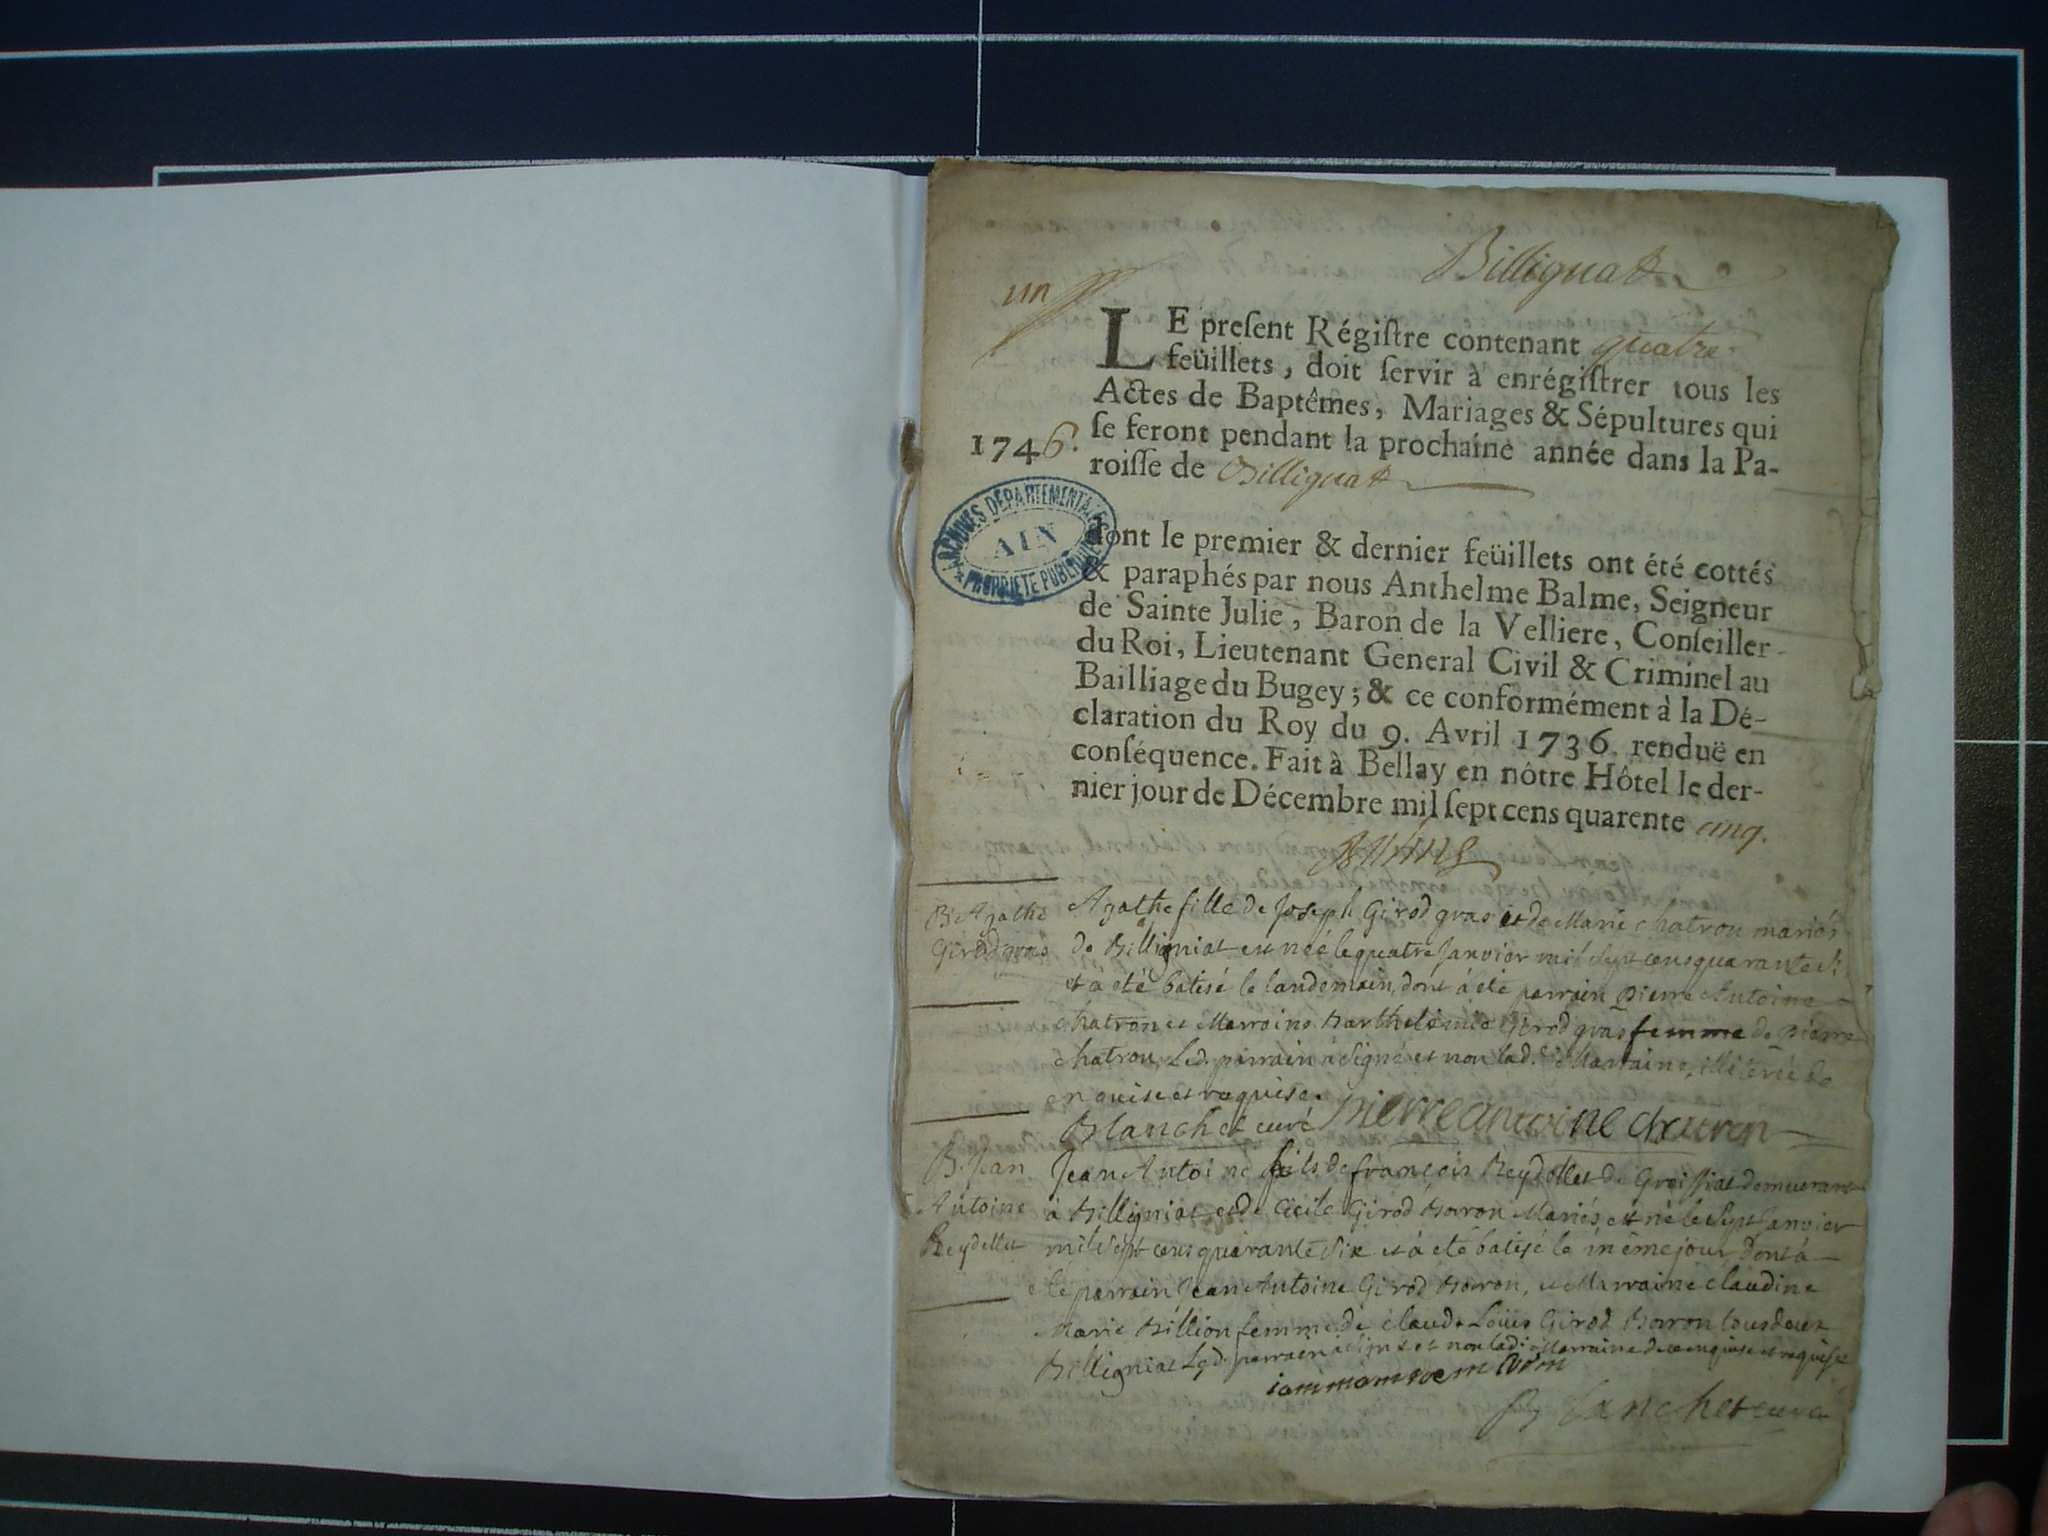 Billiguat
un
LE preſent Régiſtre contenant quatre
feüillets, doit ſervir à enrégiſtrer tous les
Actes de Baptêmes, Mariages & Sépultures qui
1746. ſe feront pendant la prochaine année dans la Pa-
roiſſe de Billiguat
ARCHIVES DEPARTEMENTALES
AIN
PROPRIETE PUBLIQUE
dont le premier & dernier feüillets ont été cottés
& paraphés par nous Anthelme Balme, Seigneur
de Sainte Julie, Baron de la Velliere, Conſeiller
du Roi, Lieutenant General Civil & Criminel au
Bailliage du Bugey; & ce conformément à la Dé-
claration du Roy du 9. Avril 1736. renduë en
conſéquence. Fait à Bellay en nôtre Hôtel le der-
nier jour de Décembre mil ſept cens quarente cinq.
B. Agathe
Girod gras
Agathe fille de Joseph Girod gras et de Marie Chatron mariés
de Billigniat est née le quatre Janvior mil sept cens quarante
et à eté batisé le landemain, dont à été parrain Pierre Antoine
Chatron et Marraine Barthelemie Girod gras femme de pierre
Chatron, Led. parrain à Signé et non lad. Marraine, illiterée de
enquise et requise.
Blanchet curé Pierre antoine chatron
B. Jean
Antoine
Reydellet
Jean Antoine fils de françois Reydellet de Groissiat demeurant
à Billigniat et de Cecile Girod Boron Mariés, est né le Sept Janvier
mil Sept cens quarante Six et à eté batisé le même jour, dont à
eté parrain Jean Antoine Girod Boron, et Marraine claudine
Marie Billion femme de claude Loüis Girod Boron tous deux
Billigniat Led. parrain à signé et non lad. Marraine de ce enquise et requise
Blanchet curé